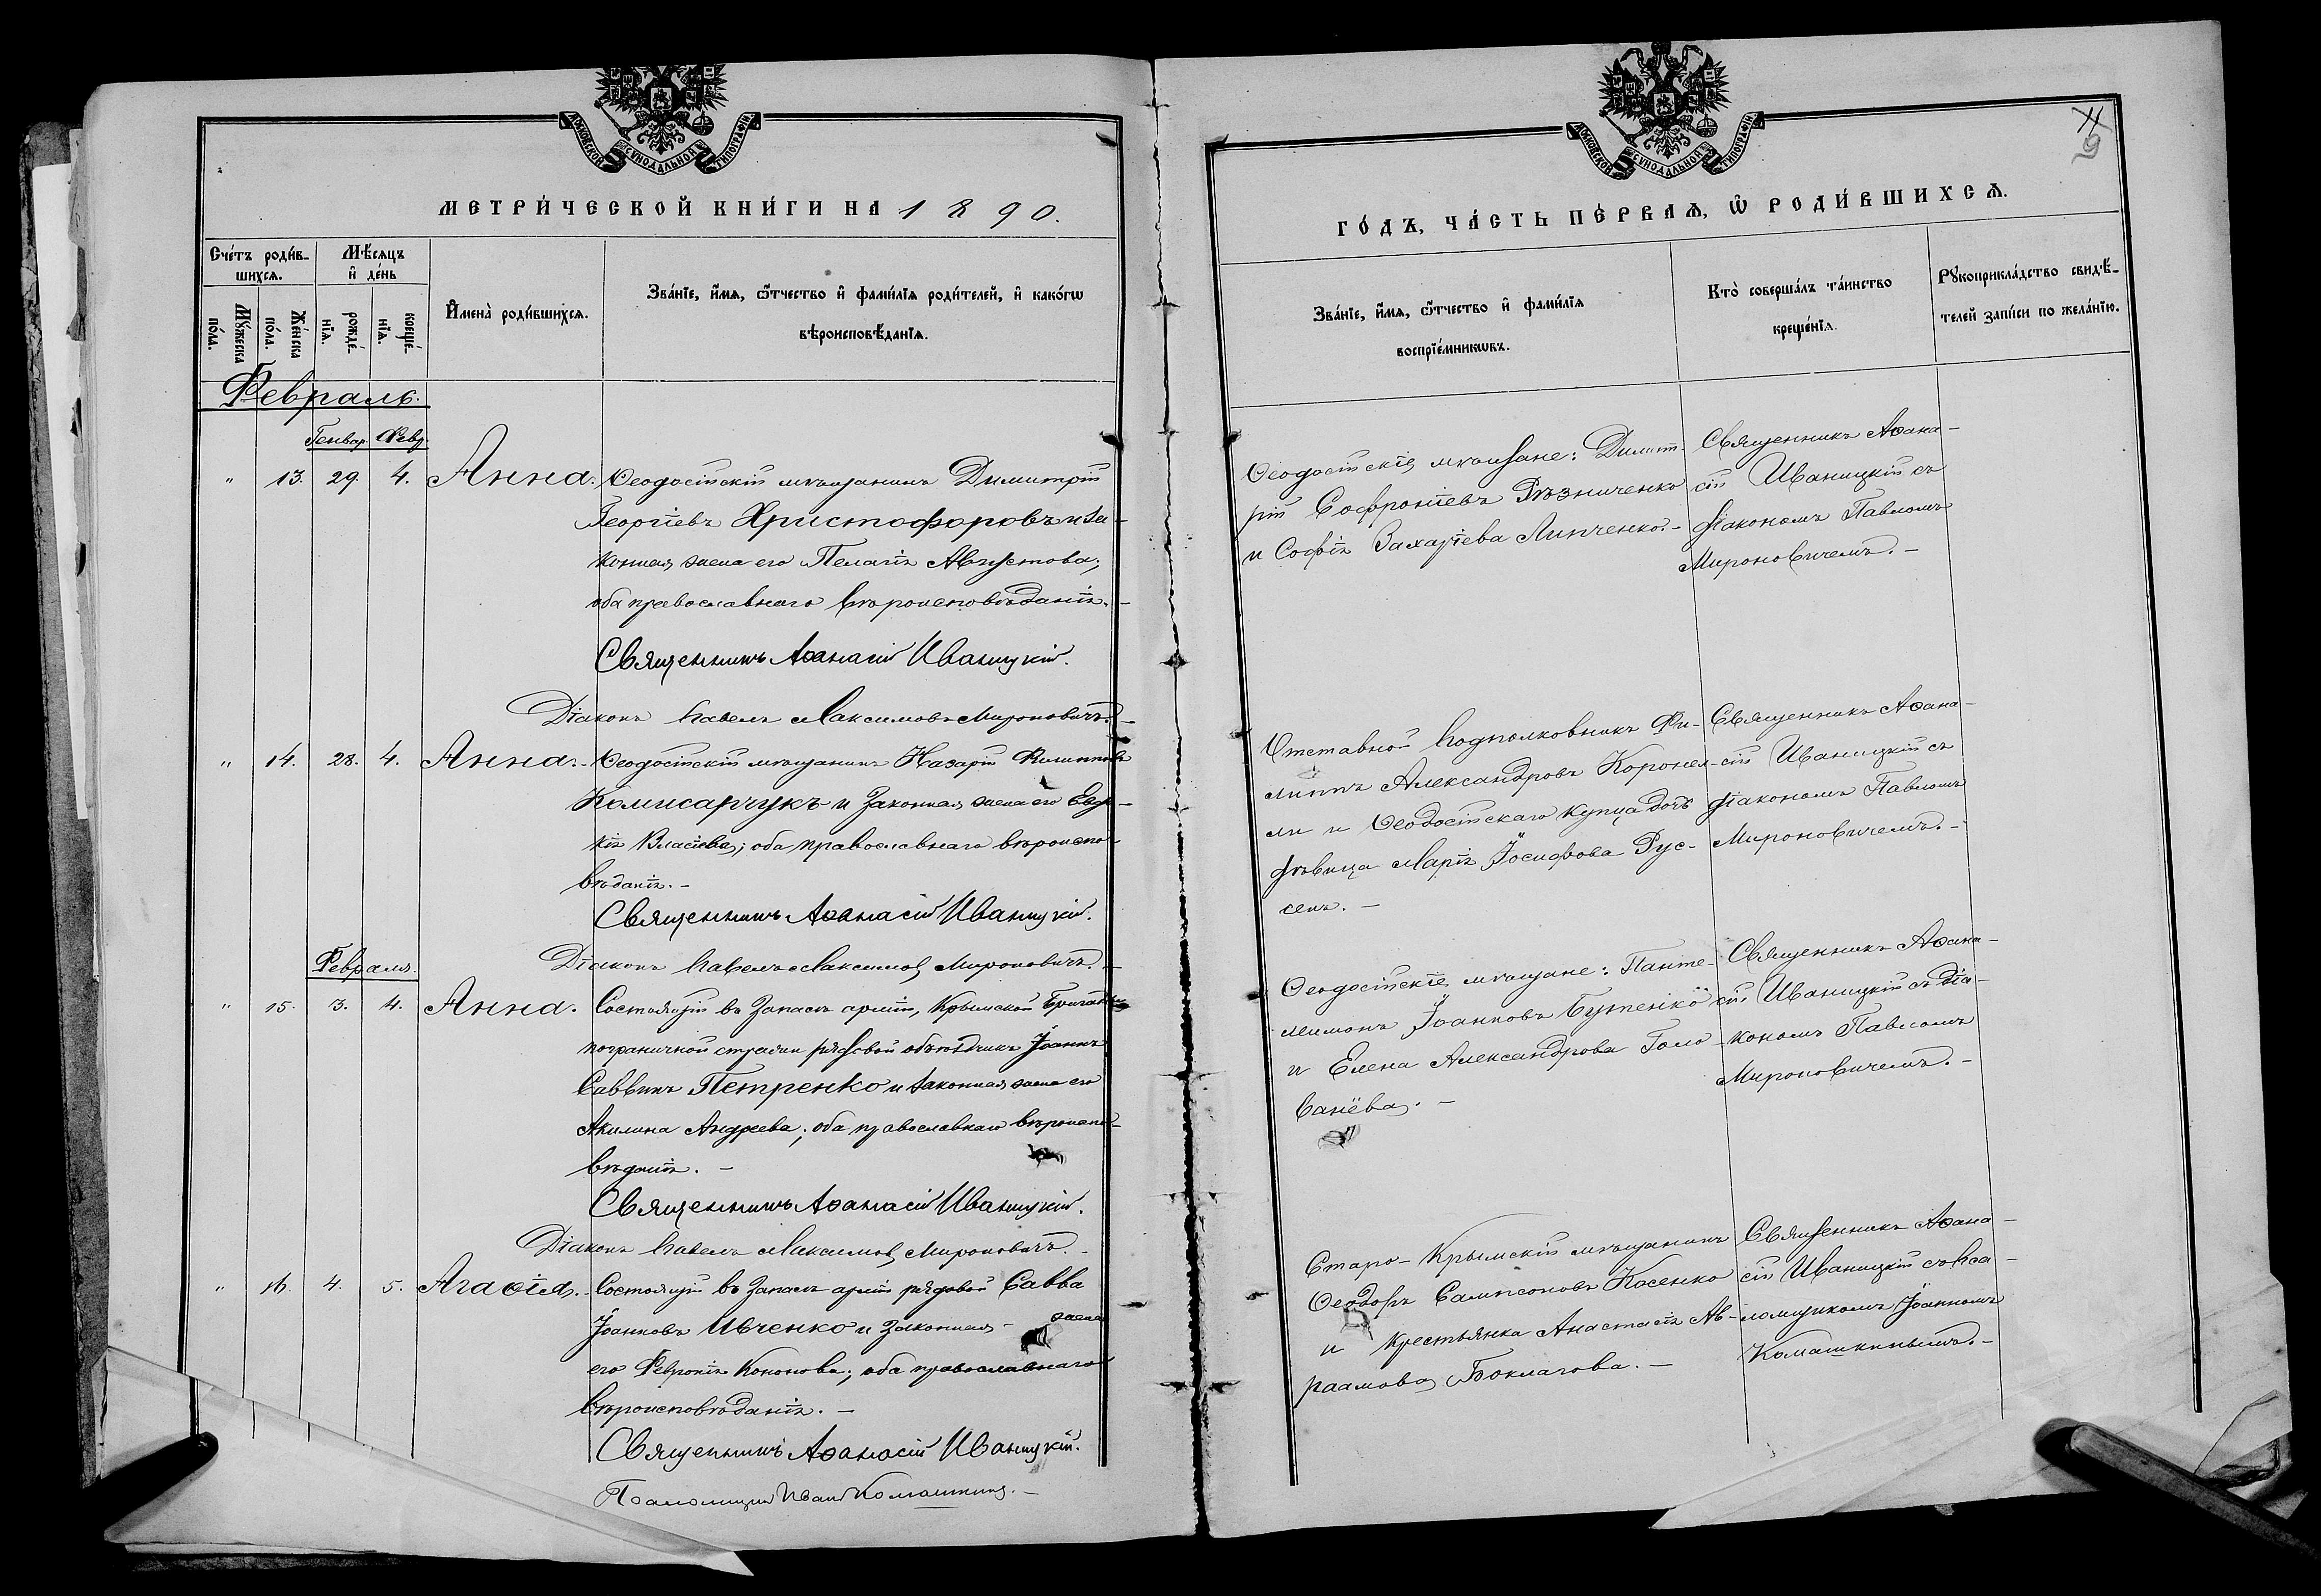 МОСКОВСКОЙ СѴНОДАЛЬНОЙ ТИПОГРАФІИ
МЕТРИ́ЧЕСКОЙ КНИ́ГИ НА 1890.
Сче́тъ роди́в-
шихсѧ.
Мѣ́сѧцъ
и҆ де́нь
Мꙋ́жеска
по́ла.
Же́нска
по́ла.
рожде́-
нїѧ.
креще́-
нїѧ.
И҆мена̀ роди́вшихсѧ.
Зва́нїе, и҆́мѧ, ѻ҆́тчество и҆ фами́лїѧ роди́телей, и҆ како́гѡ
вѣроисповѣ́данїѧ.
Февраль.
Генвар. Февр.
" 13. 29. 4. Анна. Ѳеодосійскій мѣщанинъ Димитрій
Георгіевъ Христофоровъ и за-
конная жена его Пелагія Августова;
оба православнаго вѣроисповѣданія.-
Священникъ Аѳанасій Иваницкій.
Діаконъ Павелъ Максимовъ Мироновичъ.-
" 14. 28. 4. Анна.- Ѳеодосійскій мѣщанинъ Назарій Филипповъ
Комисарчукъ и законная жена его Евдо-
кія Власіева; оба православнаго вѣроиспо-
вѣданія.-
Священникъ Аѳанасій Иваницкій.
Діаконъ Павелъ Максимов Мироновичъ.-
Февраля.
" 15. 3. 4. Анна. Состоящій въ запасѣ арміи, Крымской Бригады
пограничной стражи рядовой объѣздчикъ Іоаннъ
Саввинъ Петренко и законная жена его
Акилина Андреева; оба православнаго вѣроиспо-
вѣданія.-
Священникъ Аѳанасій Иваницкій.
Діаконъ Павелъ Максимов Мироновичъ.-
" 16. 4. 5. Агаѳія.- Состоящій въ запасѣ арміи рядовой Савва
Іоанновъ Ивченко и законная - жена
его Февронія Кононова; оба православнаго
вѣроисповѣданія.-
Священникъ Аѳанасій Иваницкій.
Псаломщикъ Иван Комашкинъ.-
МОСКОВСКОЙ СѴНОДАЛЬНОЙ ТИПОГРАФІИ
ГО́ДЪ, ЧА́СТЬ ПЕ́РВАѦ, Ѡ҆ РОДИ́ВШИХСѦ.
Зва́нїе, и҆́мѧ, ѻ҆́тчество и҆ фами́лїѧ
воспрїе́мникѡвъ.
Кто̀ соверша́лъ та́инство
креще́нїѧ.
Рꙋкоприкла́дство свидѣ́-
телей за́писи по жела́нїю.
Ѳеодосійскіе мѣщане: Димит-
рій Софроніевъ Рѣзниченко
и Софія Захаріева Липченко.-
Священникъ Аѳана-
сій Иваницкій съ
діакономъ Павломъ
Мироновичемъ.-
Отставной Подполковникъ Фи-
липпъ Александровъ Коронел-
ли и Ѳеодосійскаго купца дочь
дѣвица Марія Іосифова Рус-
сенъ.-
Священникъ Аѳана-
сій Иваницкій съ
діакономъ Павломъ
Мироновичемъ.-
Ѳеодосійскіе мѣщане: Панте-
леимонъ Іоанновъ Бутенко
и Елена Александрова Голо-
ванёва.-
Священникъ Аѳана-
сій Иваницкій съ діа-
кономъ Павломъ
Мироновичемъ.-
Старо-Крымскій мѣщанинъ
Ѳеодоръ Сампсоновъ Косенко
и крестьянка Анастасія Ав-
раамова Боклагова.-
Священникъ Аѳана-
сій Иваницкій съ Пса-
ломщикомъ Іоанномъ
Комашкинымъ.-